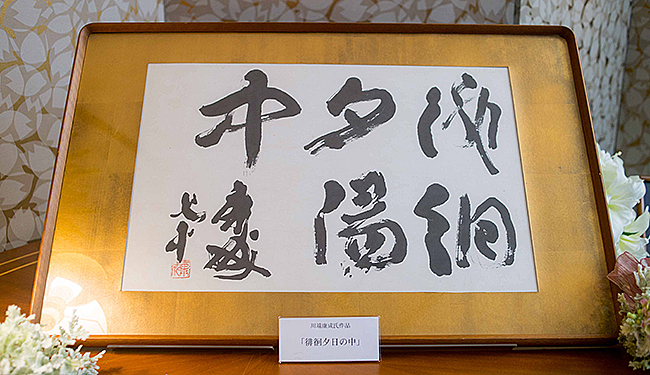 徘徊
夕陽
中
康成
川端康成氏作品
「徘徊夕日の中」